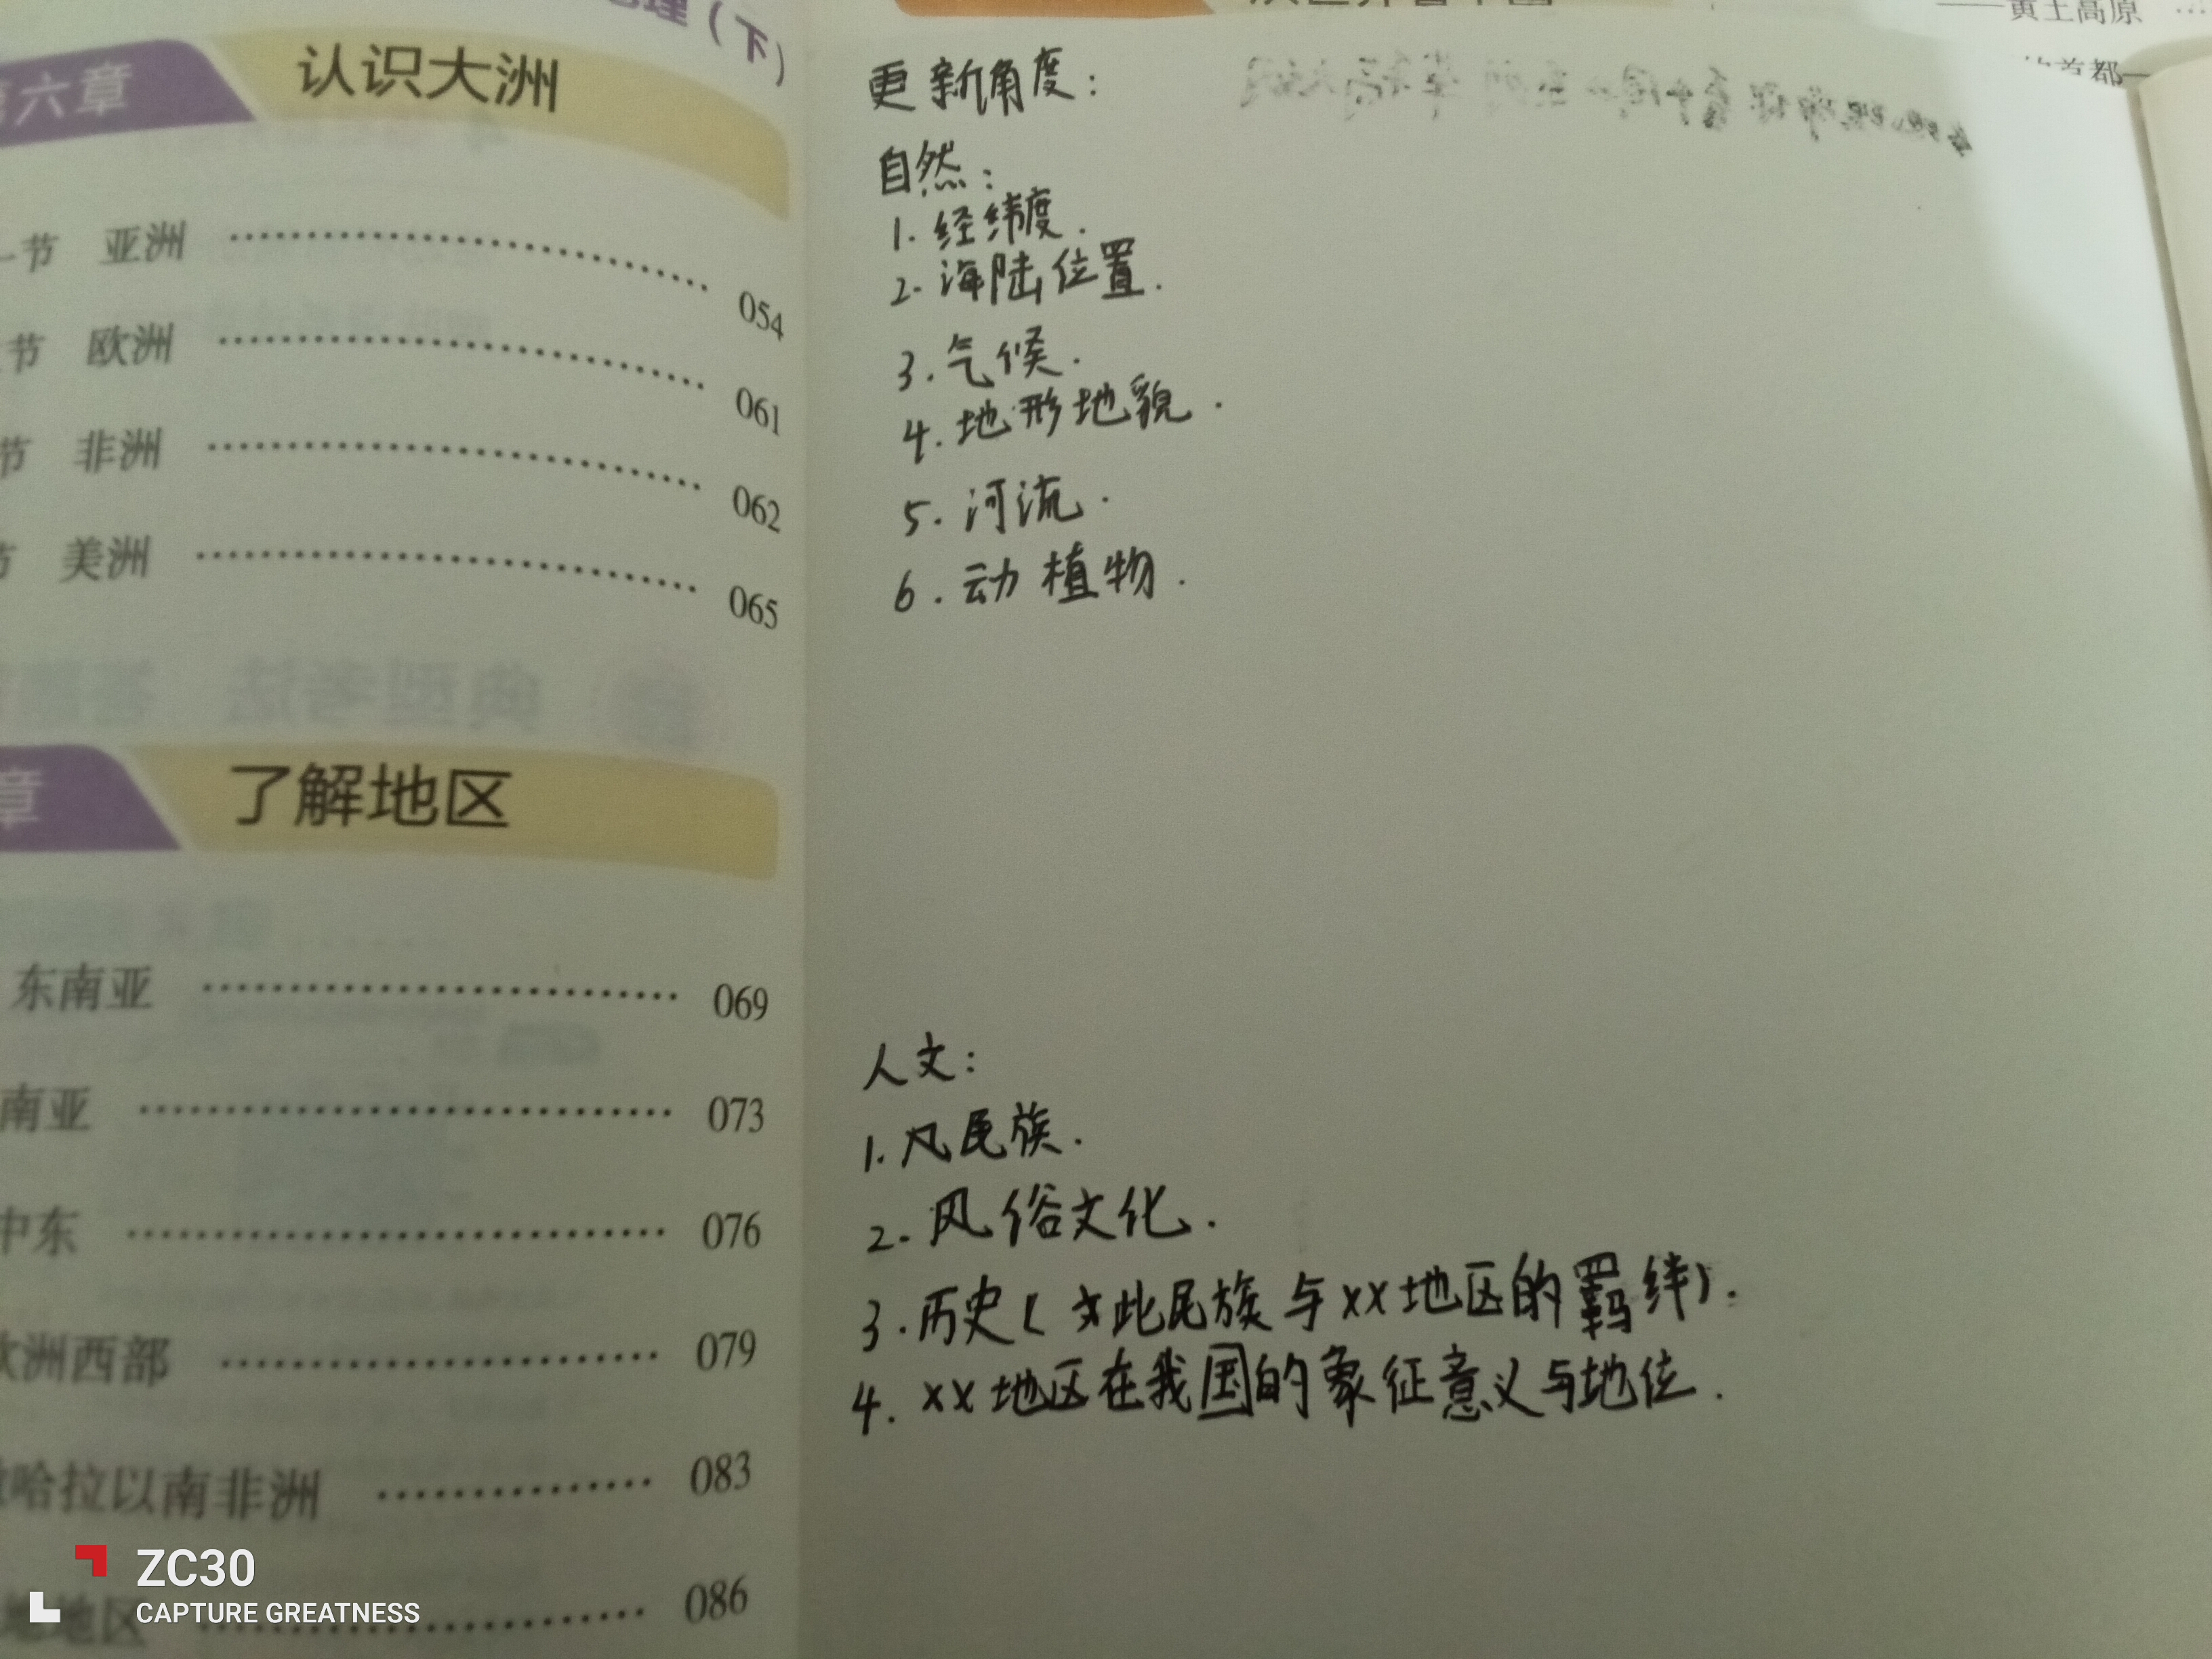 理（下）
六章 认识大洲
节 亚洲 054
节 欧洲 061
节 非洲 062
节 美洲 065
章 了解地区
东南亚 069
南亚 073
中东 076
欧洲西部 079
哈拉以南非洲 083
地地区 086
——黄土高原
首都
更新角度：
自然：
1. 经纬度.
2. 海陆位置.
3. 气候.
4. 地形地貌.
5. 河流.
6. 动植物.
人文：
1. 民族.
2. 风俗文化.
3. 历史（此民族与xx地区的羁绊）.
4. xx地区在我国的象征意义与地位.
ZC30
CAPTURE GREATNESS